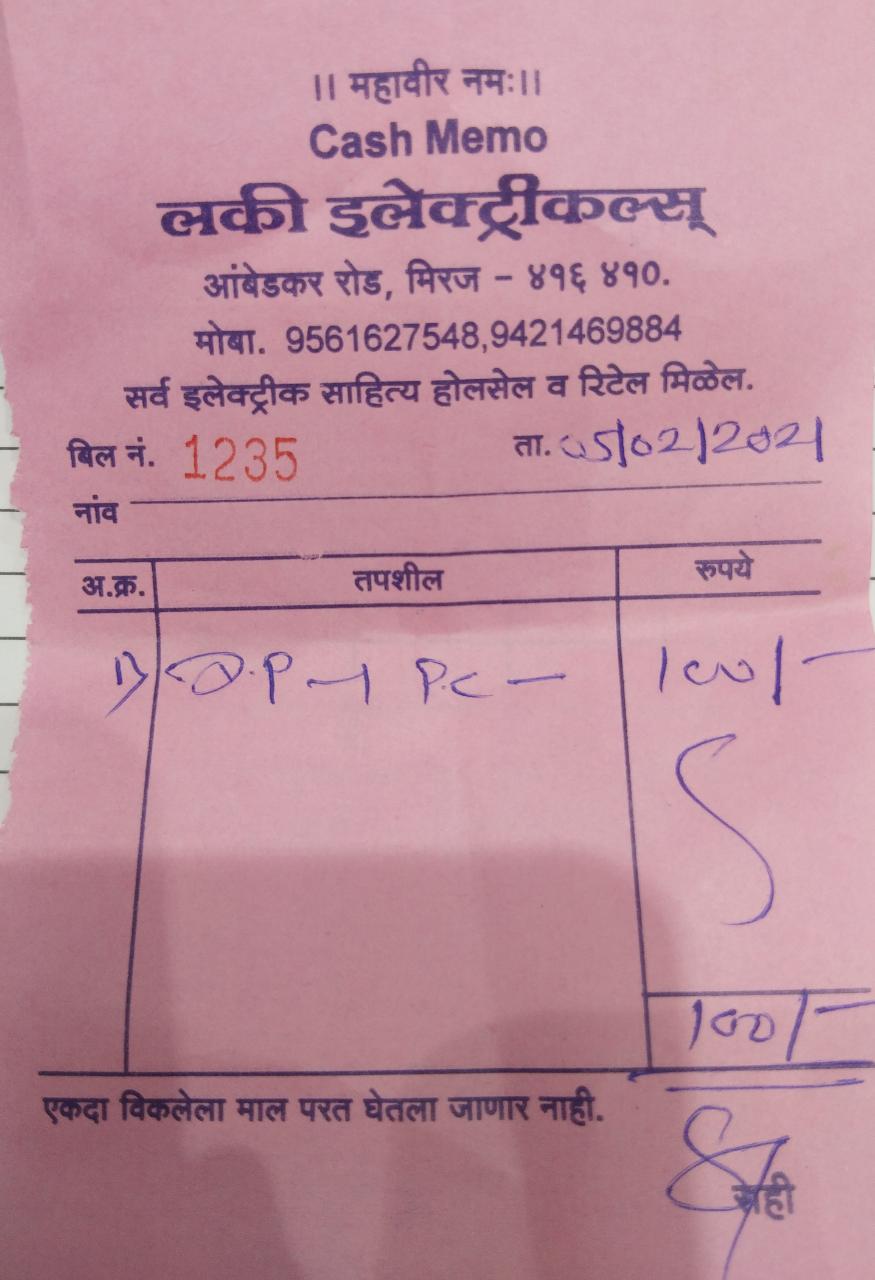 ।। महावीर नमः।।
Cash Memo
लकी इलेक्ट्रीकल्स्
आंबेडकर रोड, मिरज - ४१६ ४१०.
मोबा. 9561627548,9421469884
सर्व इलेक्ट्रीक साहित्य होलसेल व रिटेल मिळेल.
बिल नं. 1235 ता. 05/02/2021
नांव
अ.क्र. तपशील रुपये
1) D.P - 1 P.C - 100/-
100/-
एकदा विकलेला माल परत घेतला जाणार नाही.
सही